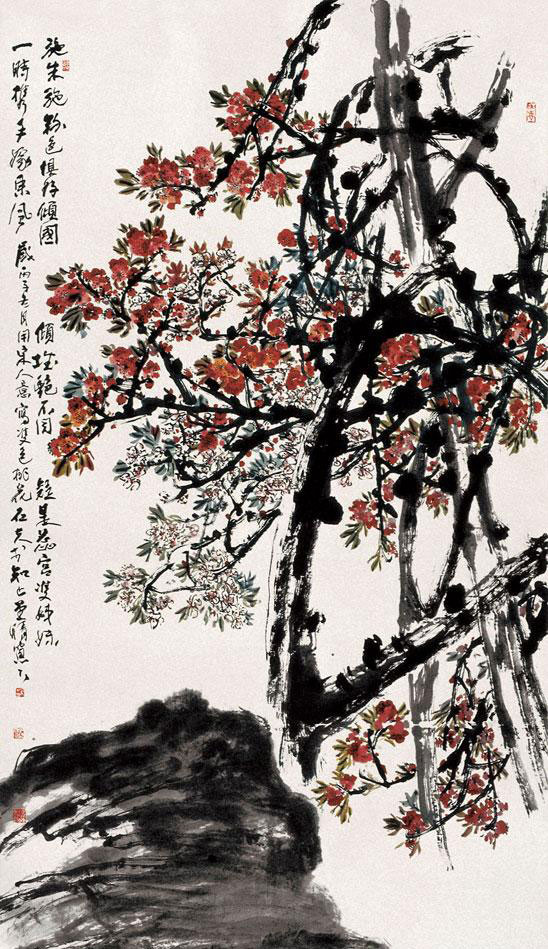 施朱施粉色俱好傾國傾城艷不同疑是蕊宮雙姊妹
一時攜手嫁東風歲丙子月用宋人意寫雙色桃花石夫於知止堂晴窗下